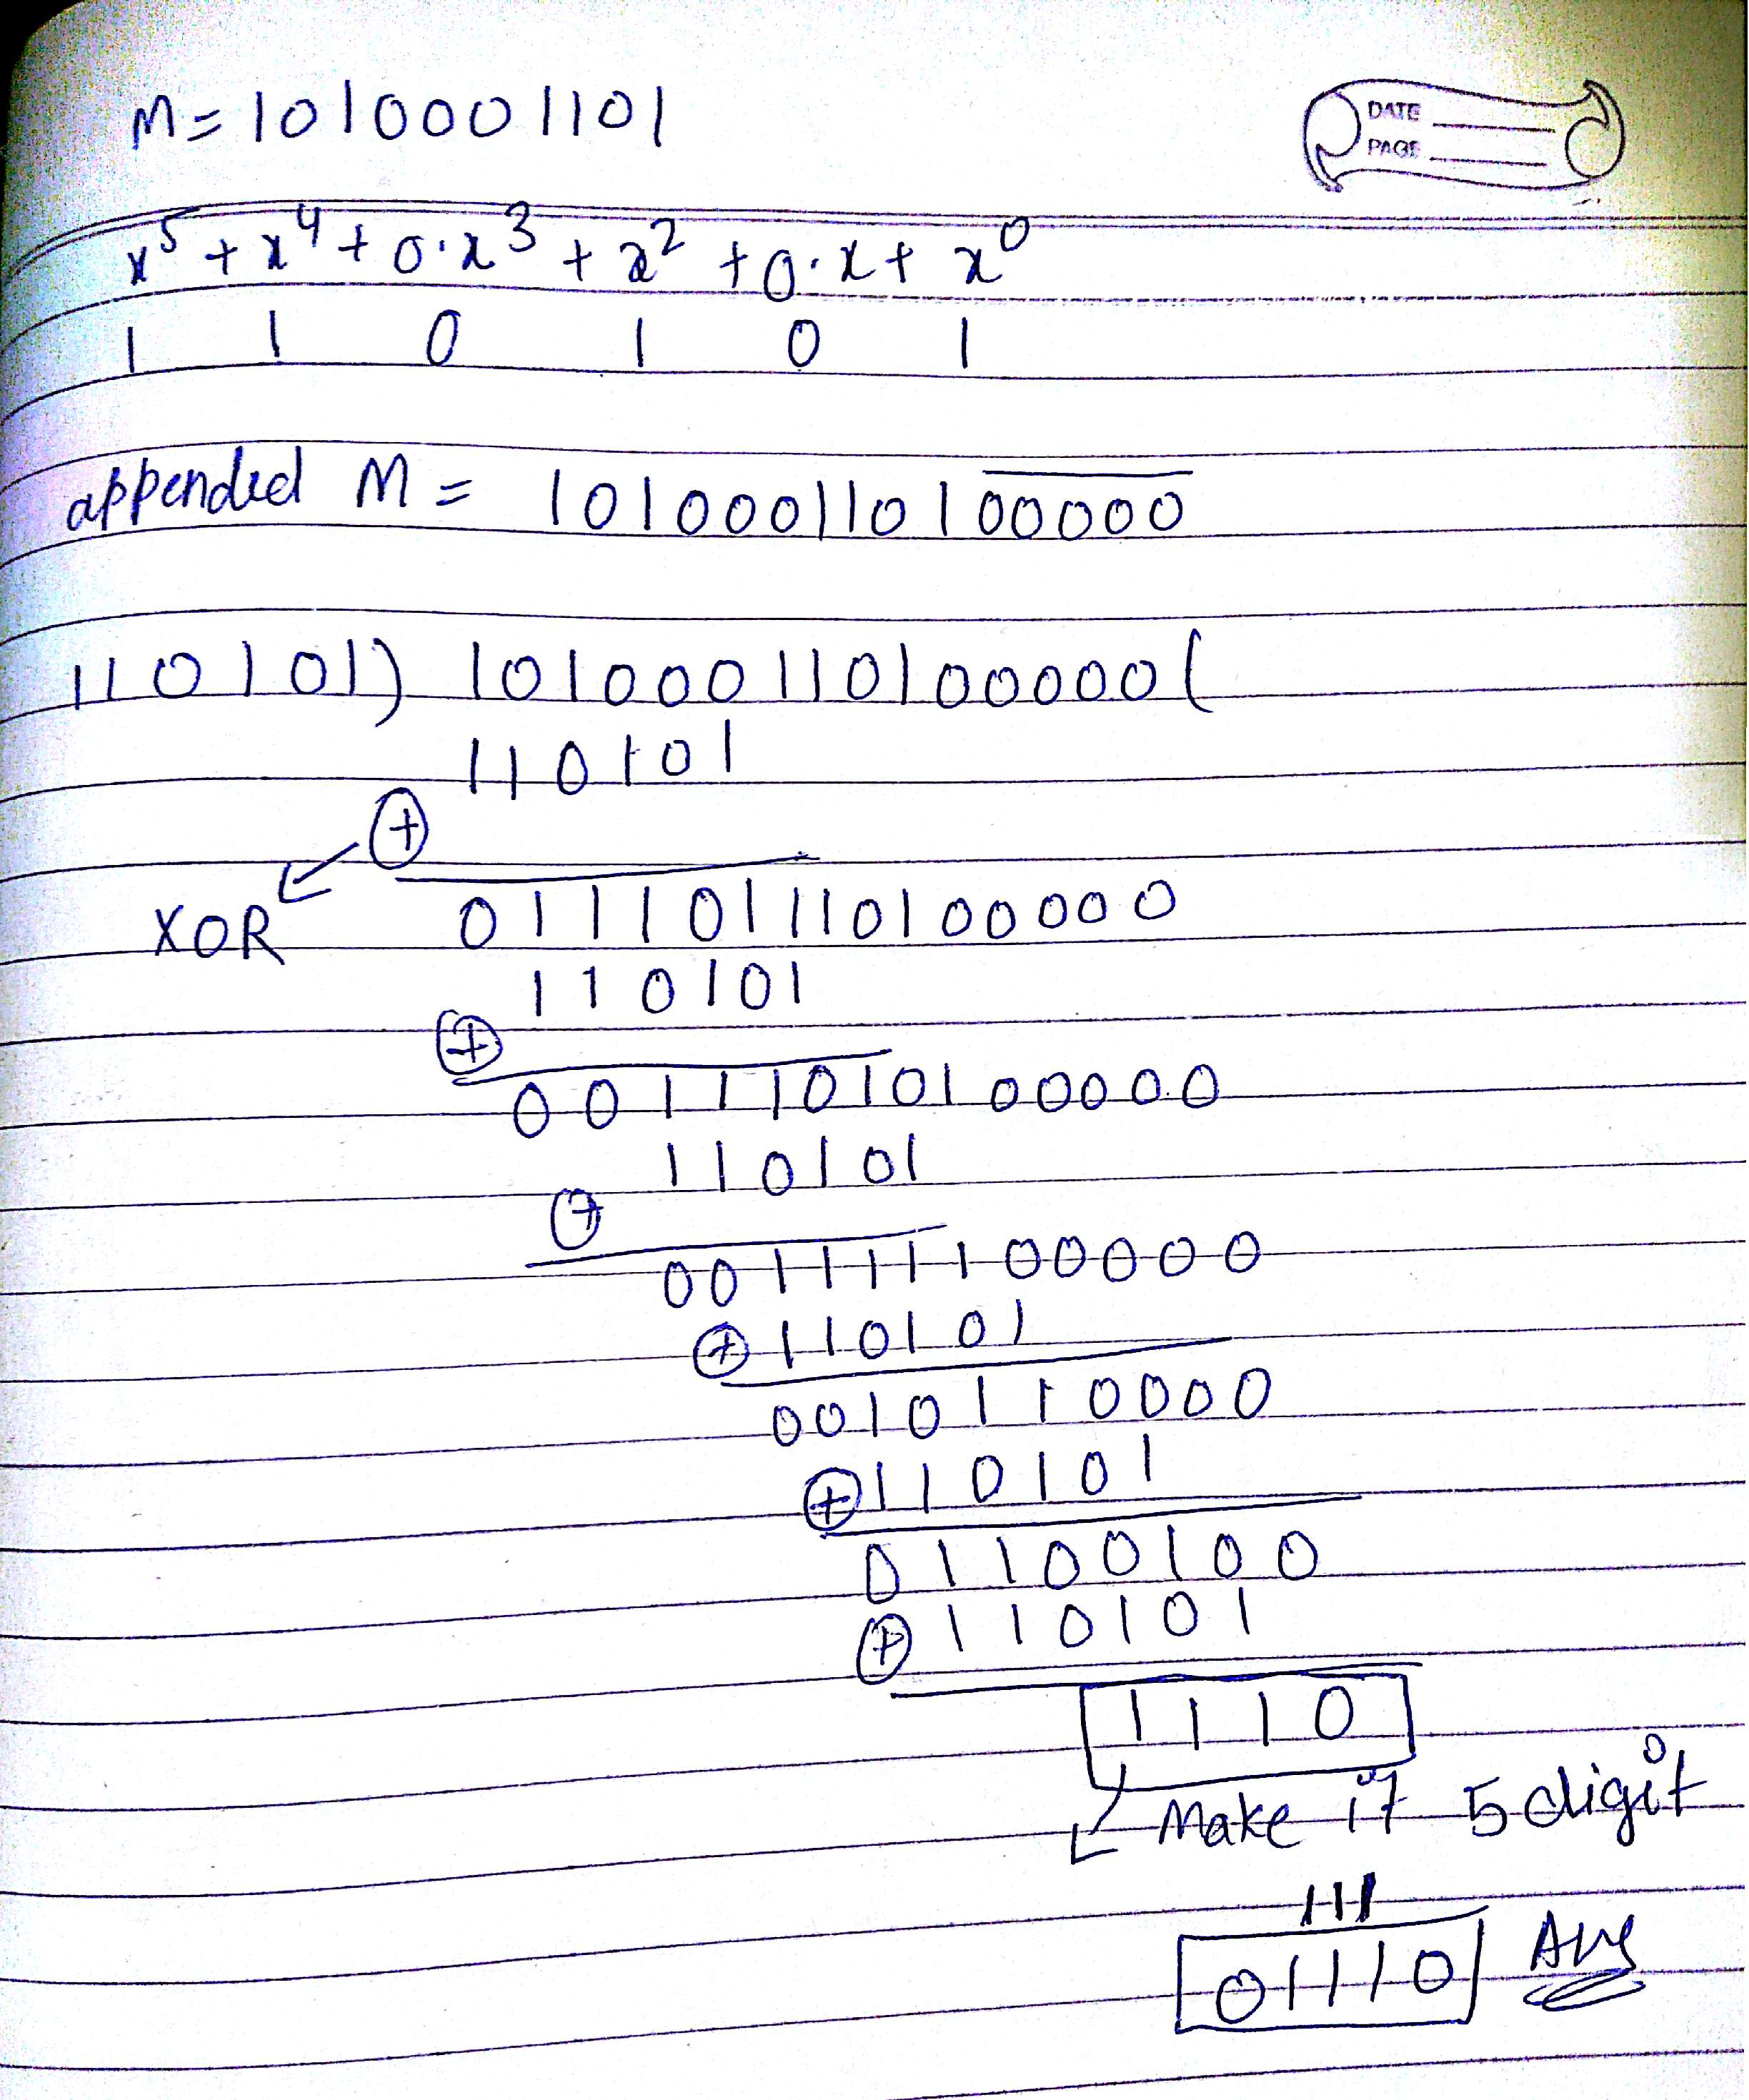 M = 1010001101
DATE
PAGE
x⁵ + x⁴ + 0·x³ + x² + 0·x + x⁰
1 1 0 1 0 1
appended M = 101000110100000
110101) 101000110100000(
110101
⊕
XOR 011101110100000
110101
⊕
00111010100000
110101
⊕
001111100000
⊕ 110101
0010110000
⊕ 110101
01100100
⊕ 110101
1110
Make it 5 digit
111
01110 Ans